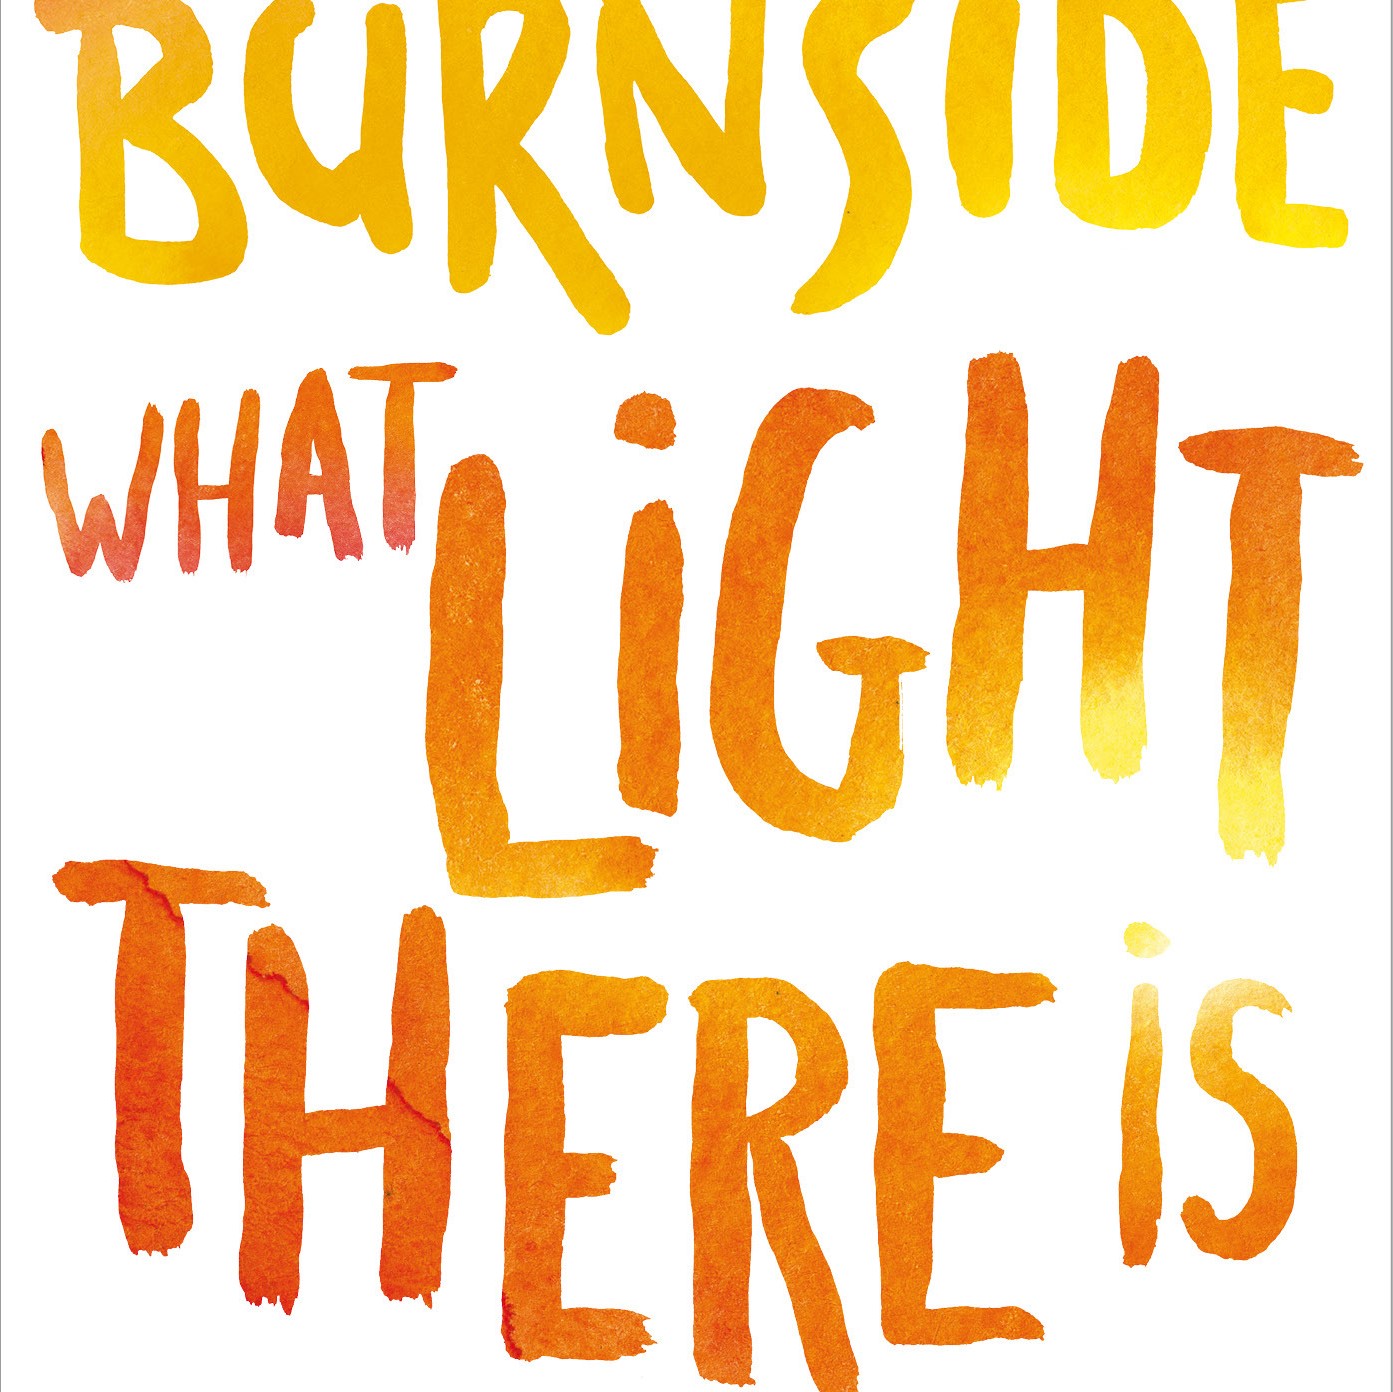 BURNSIDE
WHAT LiGHT
THERE iS